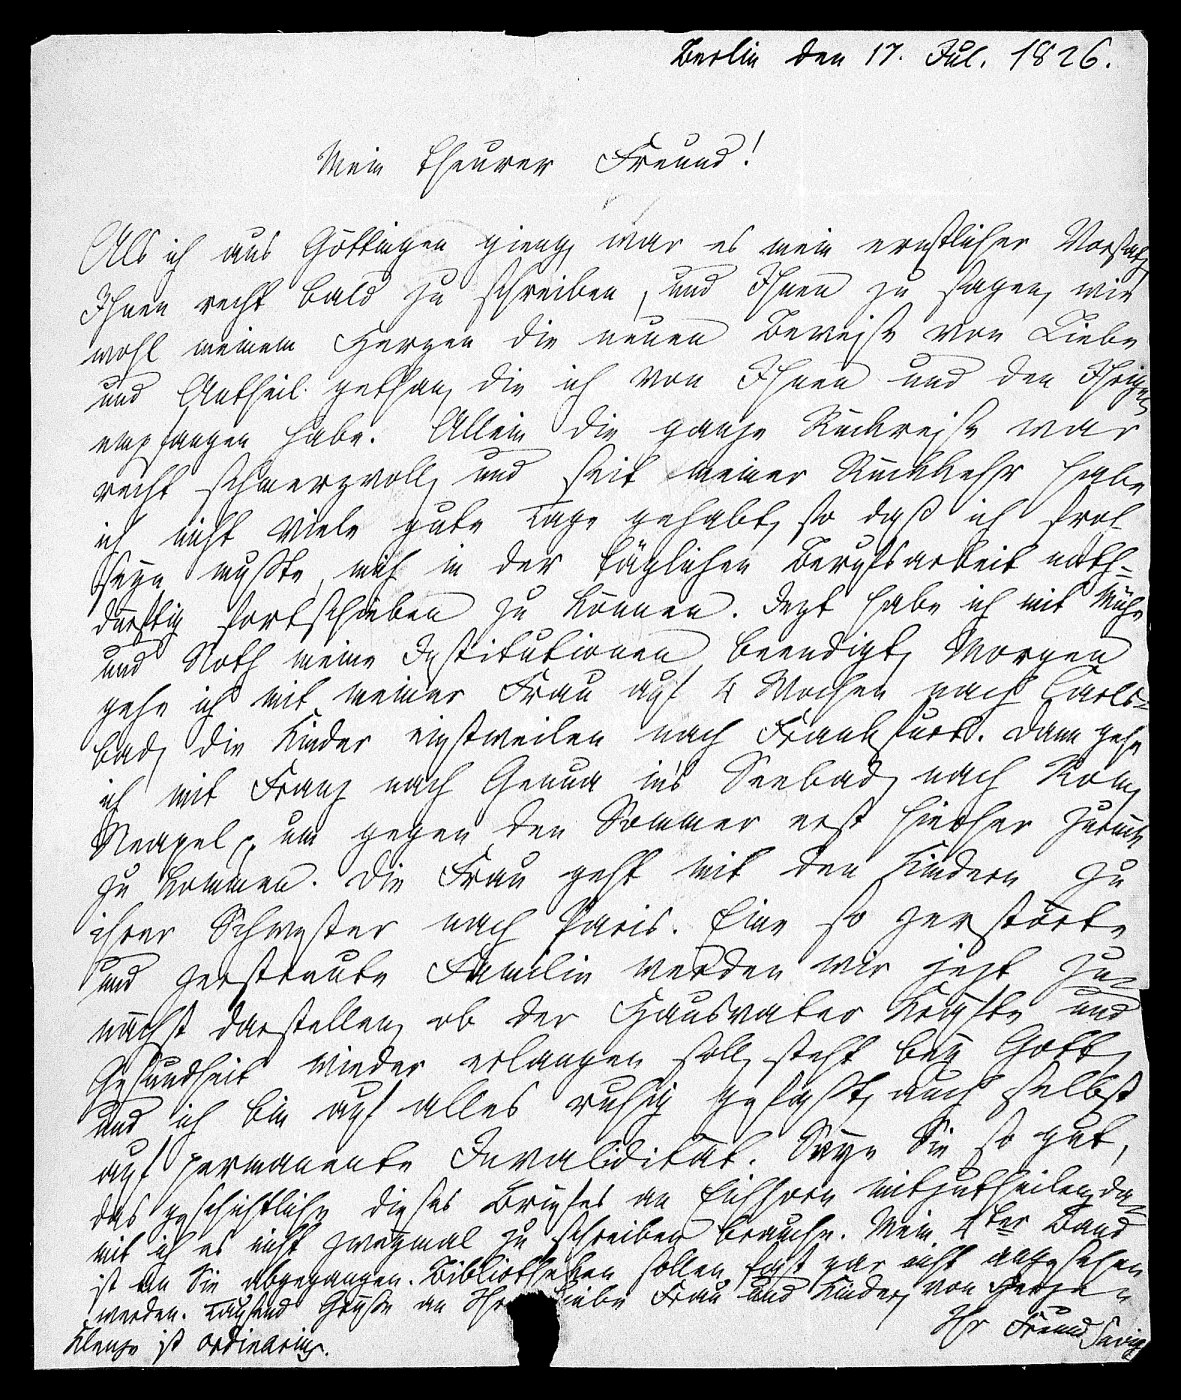 Berlin den 17. Jul. 1826.
Mein theurer Freund!
Als ich aus Göttingen gieng, war es mein ernstlicher Vorsatz,
Ihnen recht bald zu schreiben, und Ihnen zu sagen, wie
wohl meinem Herzen die neuen Beweise von Liebe
und Antheil gethan, die ich von Ihnen und den Ihrigen
empfangen habe. Allein die ganze Rückreise war
recht schmerzvoll, und seit meiner Rückkehr habe
ich nicht viele gute Tage gehabt, so daß ich froh
seyn mußte, mich in der täglichen Berufsarbeit noth-
dürftig fortschieben zu können. Jezt habe ich mit Mühe
und Noth meine Institutionen beendigt, Morgen
gehe ich mit meiner Frau auf 4 Wochen nach Carls-
bad, die Kinder einstweilen nach Frankfurt. Dann gehe
ich mit Franz nach Genua ins Seebad, nach Rom,
Neapel, um gegen den Sommer erst hierher zurück
zu kommen. Die Frau geht mit den Kindern zu
ihrer Schwester nach Paris. Eine so zerstörte
und zerstreute Familie werden wir jezt zu-
nächst darstellen, ob der Hausvater Kräfte und
Gesundheit wieder erlangen soll, steht bey Gott,
und ich bin auf alles ruhig gefaßt, auch selbst
auf permanente Invalidität. Seyn Sie so gut,
das geschichtliche dieses Briefes an Eichhorn mitzutheilen, da-
mit ich es nicht zweymal zu schreiben brauche. Mein 4ter Band
ist an Sie abgegangen. Bibliotheken sollen fast gar nicht angesehen
werden. Tausend Grüße an Ihre liebe Frau und Kinder, von Herzen
Ihr Freund Savigny
Klenze ist ordinarius.